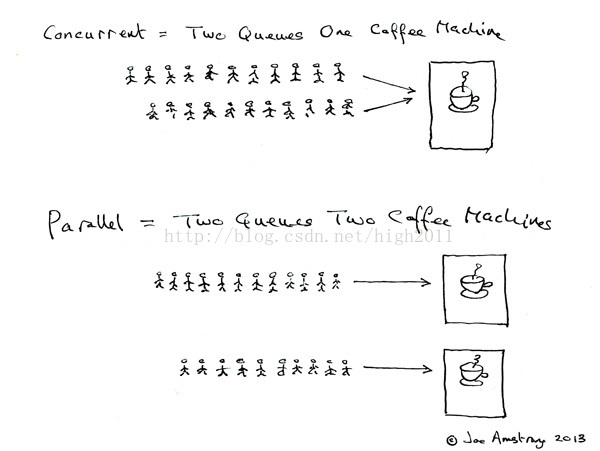 Concurrent = Two Queues One Coffee Machine
Parallel = Two Queues Two Coffee Machines
http://blog.csdn.net/high2011
© Joe Armstrong 2013